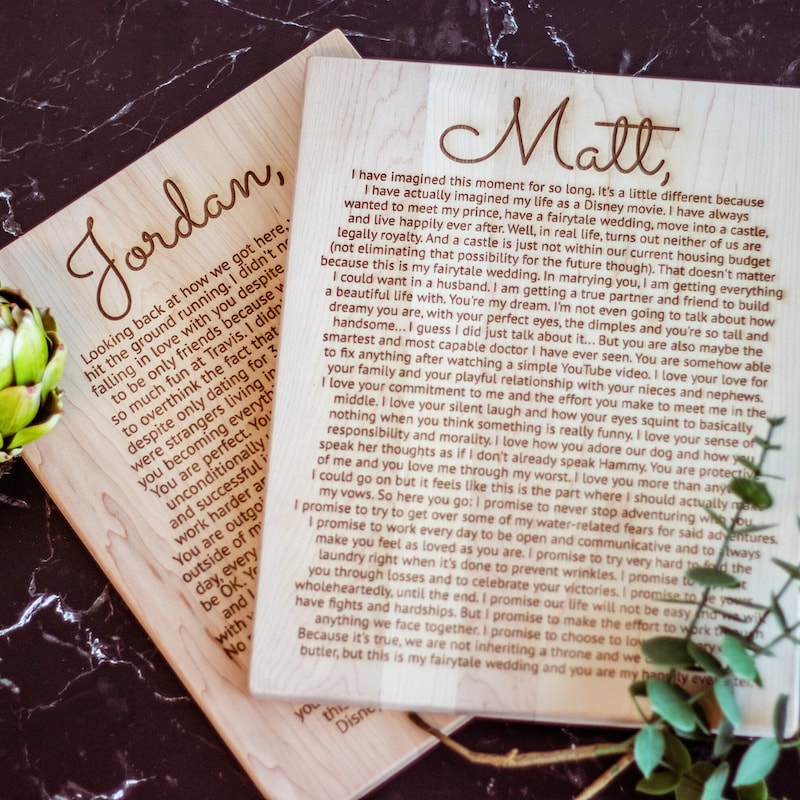 Jordan,
Looking back at how we got here,
hit the ground running. I didn't
falling in love with you despite
to be only friends because
so much fun at Travis. I didn
to overthink the fact that
despite only dating for 3
were strangers living in
you becoming everything
You are perfect. You
unconditionally
and successful
work harder
You are outgo
outside of my
day, every
be OK.
and I
with
No
you
this
Disney
Matt,
I have imagined this moment for so long. It's a little different because
I have actually imagined my life as a Disney movie. I have always
wanted to meet my prince, have a fairytale wedding, move into a castle,
and live happily ever after. Well, in real life, turns out neither of us are
legally royalty. And a castle is just not within our current housing budget
(not eliminating that possibility for the future though). That doesn't matter
because this is my fairytale wedding. In marrying you, I am getting everything
I could want in a husband. I am getting a true partner and friend to build
a beautiful life with. You're my dream. I'm not even going to talk about how
dreamy you are, with your perfect eyes, the dimples and you're so tall and
handsome... I guess I did just talk about it... But you are also maybe the
smartest and most capable doctor I have ever seen. You are somehow able
to fix anything after watching a simple YouTube video. I love your love for
your family and your playful relationship with your nieces and nephews.
I love your commitment to me and the effort you make to meet me in the
middle. I love your silent laugh and how your eyes squint to basically
nothing when you think something is really funny. I love your sense of
responsibility and morality. I love how you adore our dog and how you
speak her thoughts as if I don't already speak Hammy. You are protective
of me and you love me through my worst. I love you more than any
I could go on but it feels like this is the part where I should actually make
my vows. So here you go: I promise to never stop adventuring with you.
I promise to try to get over some of my water-related fears for said adventures.
I promise to work every day to be open and communicative and to always
make you feel as loved as you are. I promise to try very hard to fold the
laundry right when it's done to prevent wrinkles. I promise to
you through losses and to celebrate your victories. I promise to be yours
wholeheartedly, until the end. I promise our life will not be easy and we will
have fights and hardships. But I promise to make the effort to work through
anything we face together. I promise to choose to love
Because it's true, we are not inheriting a throne and we
butler, but this is my fairytale wedding and you are my happily ever after.